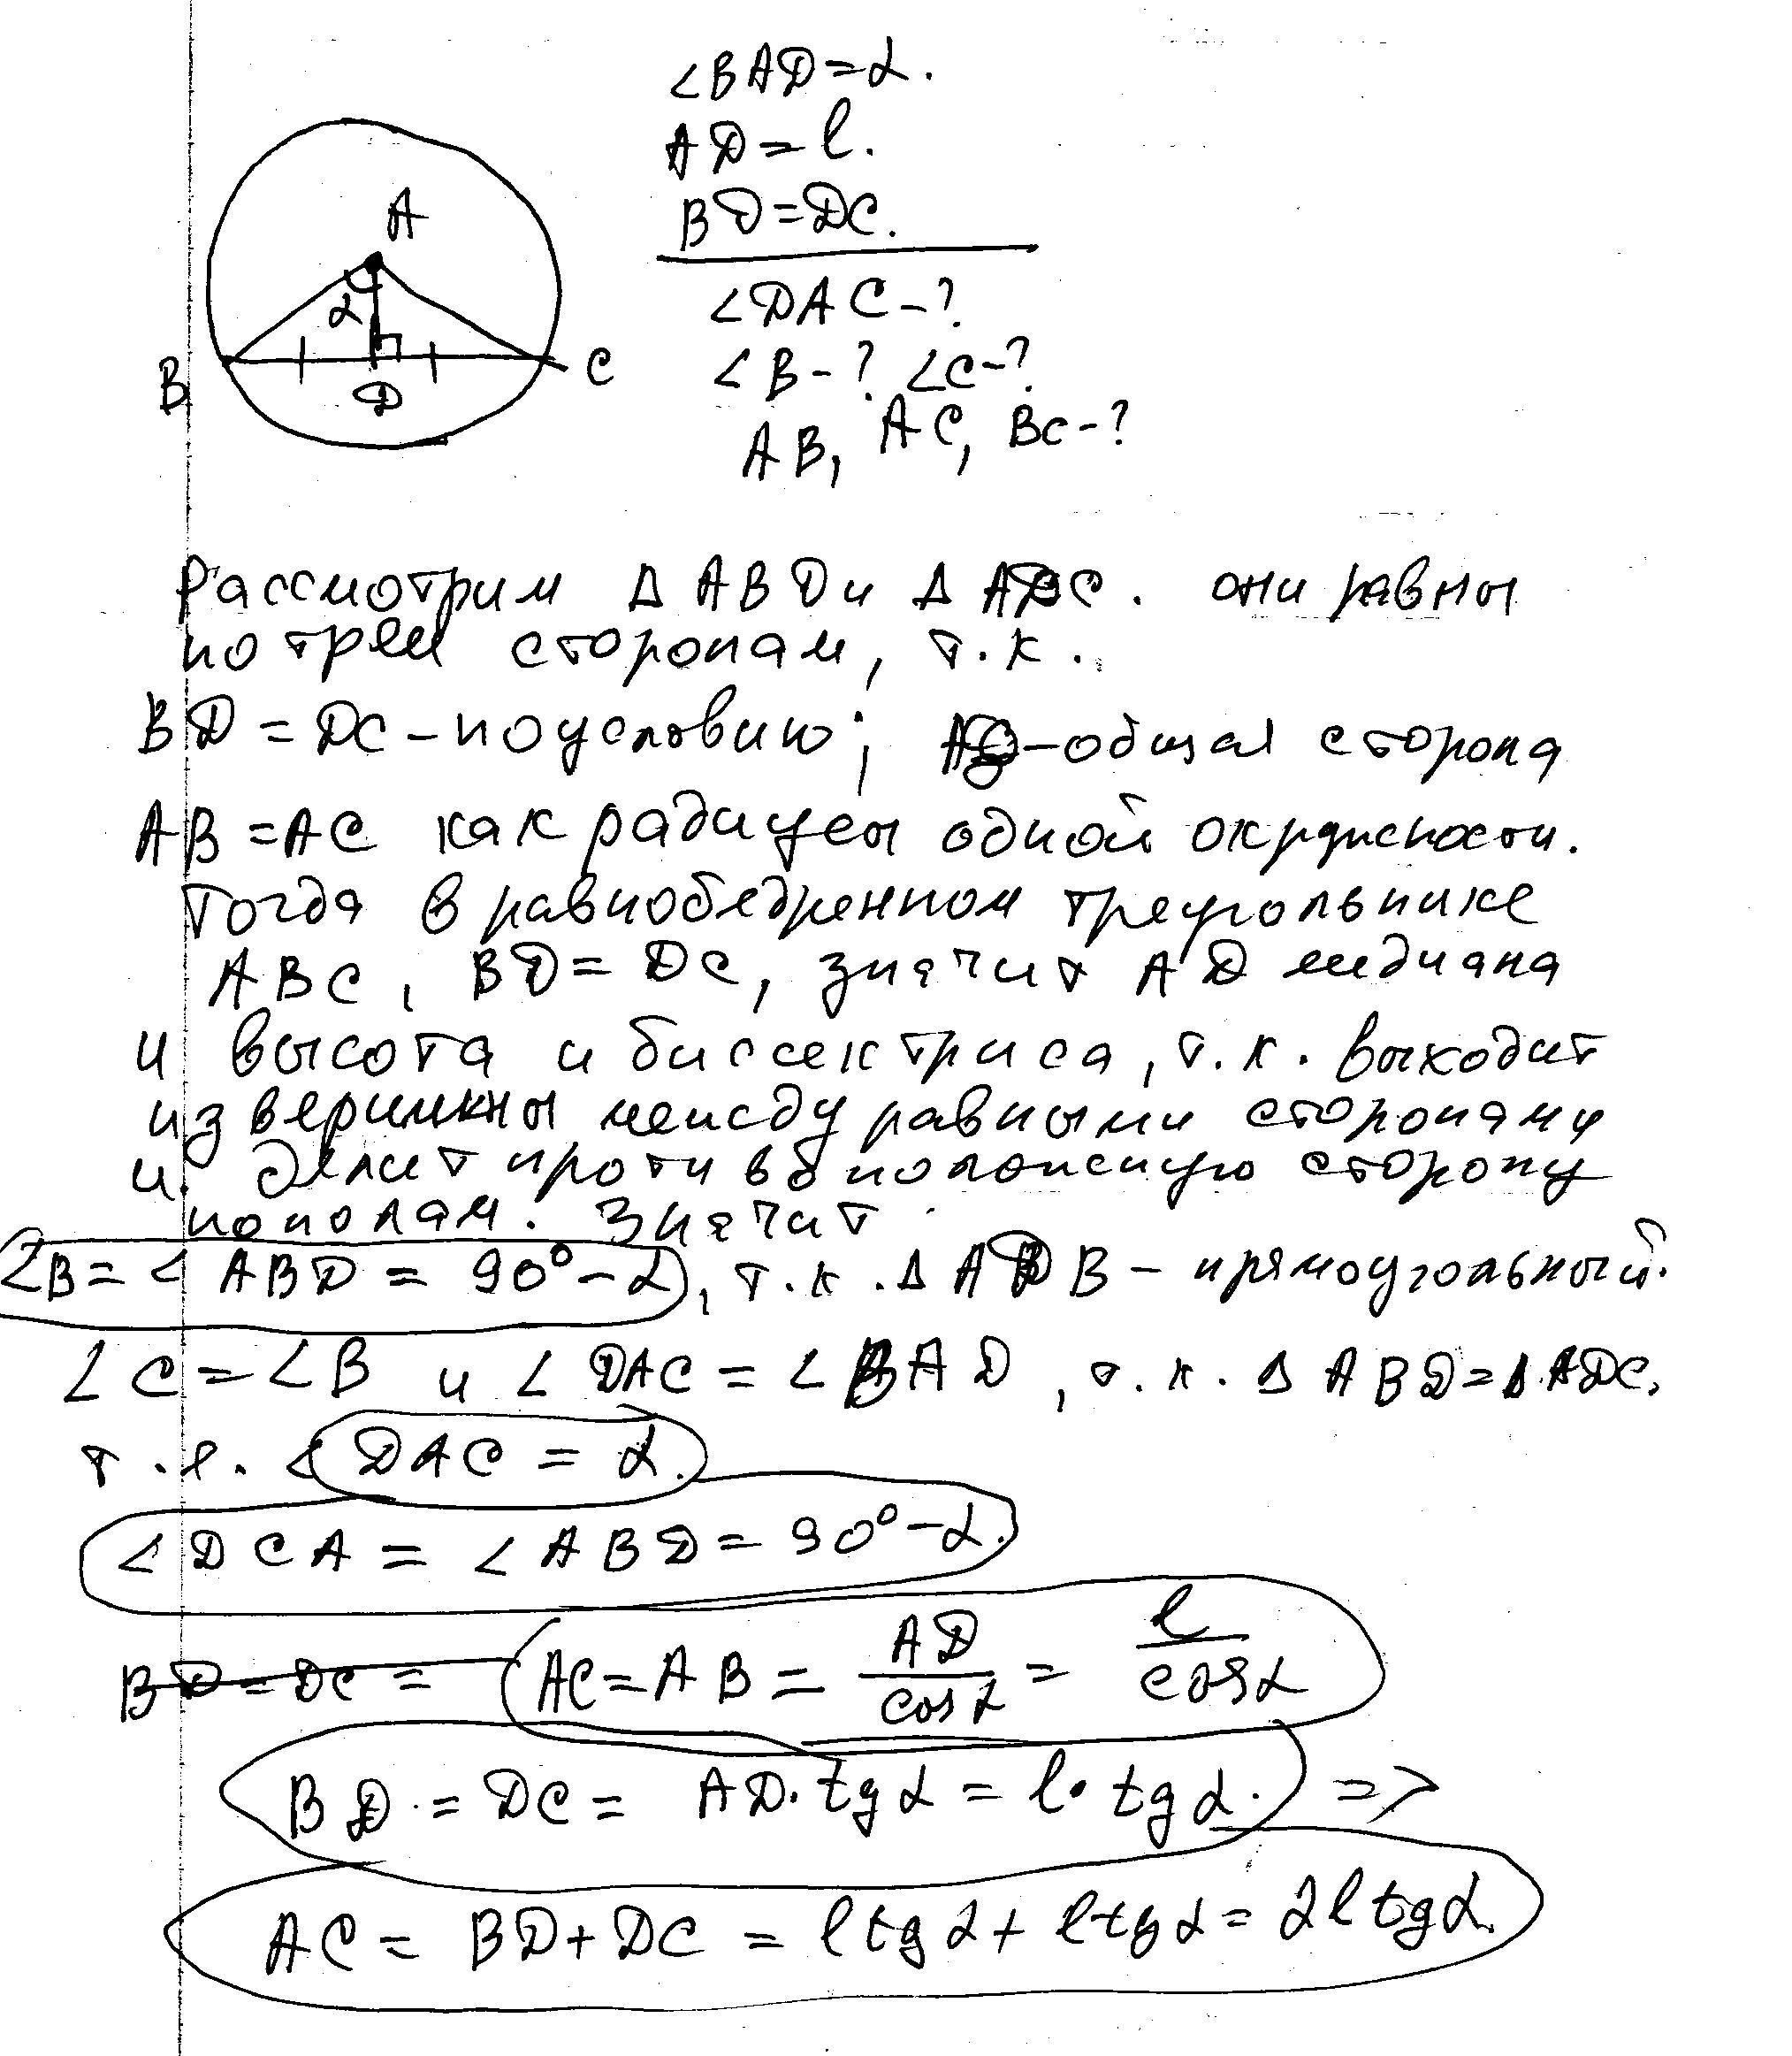 ∠BAD=α.
AD=l.
BD=DC.
∠DAC-?
∠B-? ∠C-?
AB, AC, BC-?
A
α
B
D
C
Рассмотрим Δ ABD и Δ ADC. они равны
по трем сторонам, т.к.
BD = DC - по условию; AD - общая сторона
AB = AC как радиусы одной окружности.
Тогда в равнобедренном треугольнике
ABC, BD = DC, значит AD медиана
и высота и биссектриса, т.к. выходит
из вершины между равными сторонами
и делит противоположную сторону
пополам. Значит
∠B = ∠ABD = 90° - α, т.к. Δ ADB - прямоугольный.
∠C = ∠B и ∠DAC = ∠BAD, т.к. Δ ABD = Δ ADC,
т.е. ∠DAC = α.
∠DCA = ∠ABD = 90° - α.
BD = DC = AC = AB = AD/cos α = l/cos α
BD = DC = AD · tg α = l · tg α. =>
AC = BD + DC = l tg α + l tg α = 2l tg α.